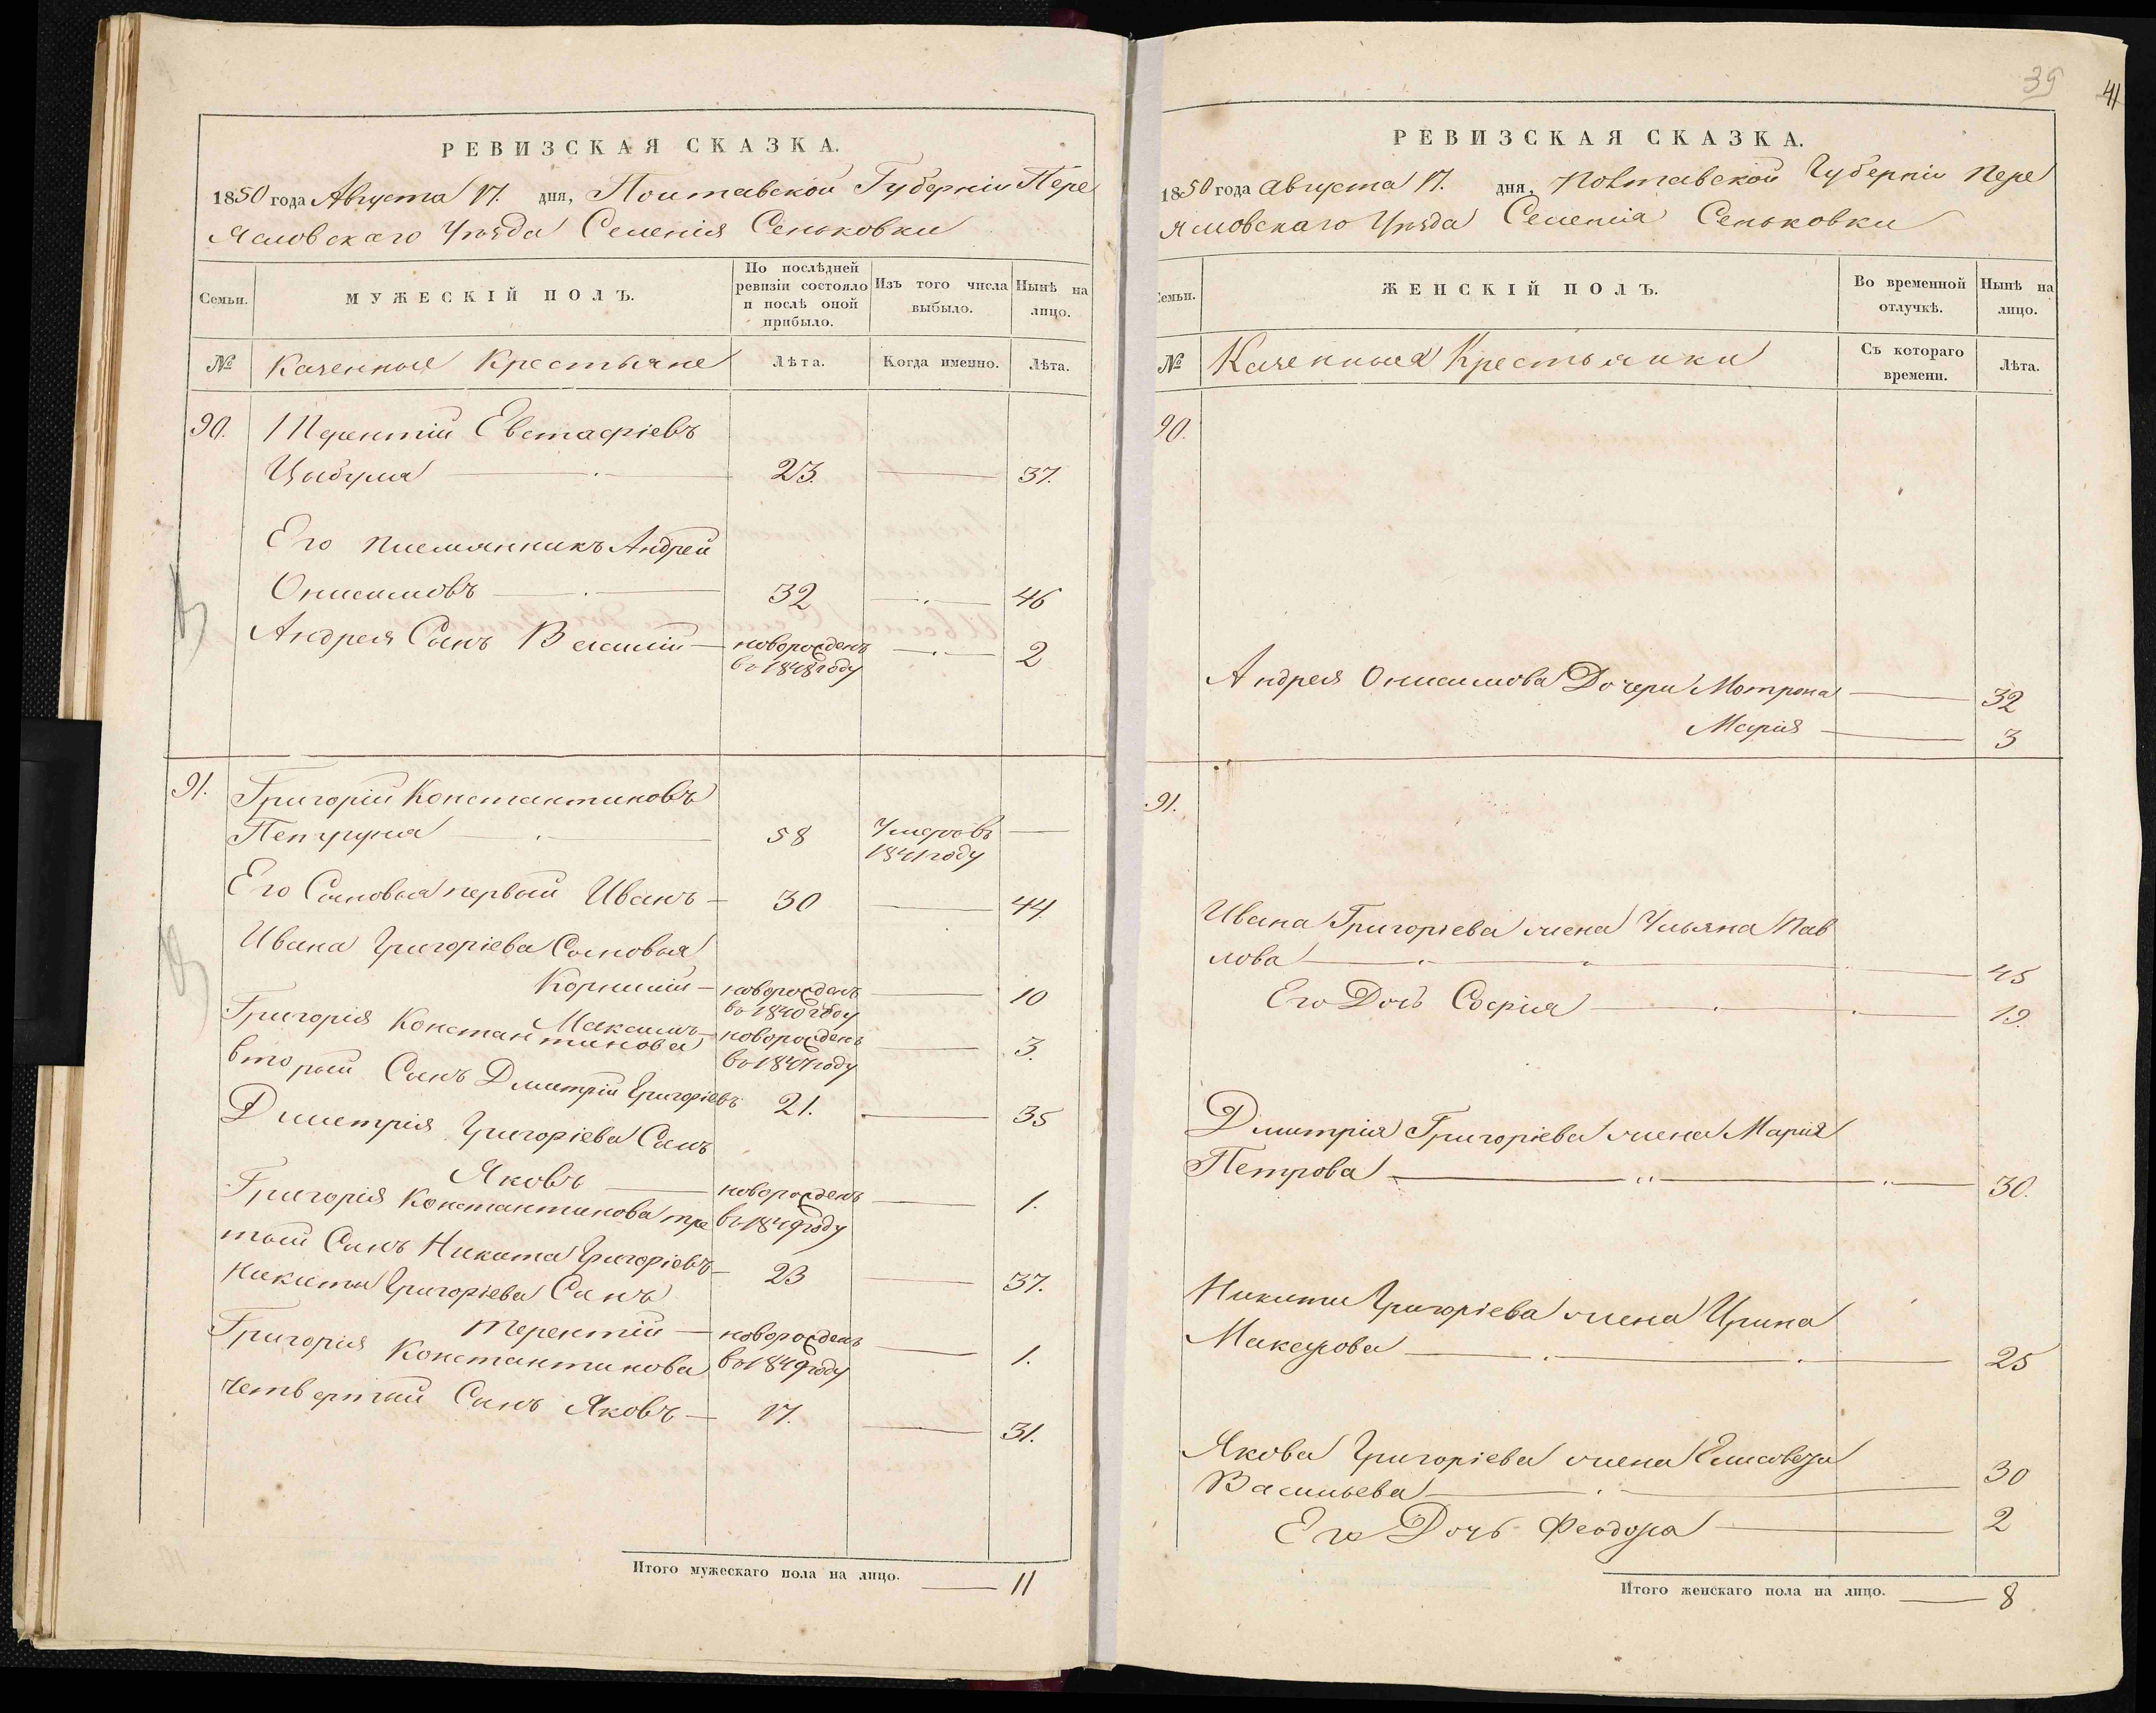 РЕВИЗСКАЯ СКАЗКА.
1850 года Августа 17. дня, Полтавской Губернiи Пере
ясловскаго Уѣзда Селенiя Сеньковки
Семьи.
МУЖЕСКIЙ ПОЛЪ.
По послѣдней
ревизiи состояло
и послѣ оной
прибыло.
Изъ того числа
выбыло.
Нынѣ на
лицо.
№
Казенные Крестьяне
Лѣта.
Когда именно.
Лѣта.
90. Терентiй Евстафiевъ
Цыбуля 23. 37.
Его племянникъ Андрей
Онисимовъ 32 46
Андрея Сынъ Василiй новорожденъ 2
въ 1848 году
91. Григорiй Константиновъ
58 Умеръ въ
1841 году
Его Сыновья первый Иванъ 30 44
Ивана Григорiева Сыновья
Корнилiй новорожденъ 10
въ 1840 году
Максимъ новорожденъ 3.
въ 1847 году
Григорiя Константинова
вторый Сынъ Дмитрiй Григорiевъ 21. 35
Дмитрiя Григорiева Сынъ
Яковъ новорожденъ 1.
въ 1849 году
Григорiя Константинова тре
тый Сынъ Никита Григорiевъ 23 37.
Никиты Григорiева Сынъ
Терентiй новорожденъ 1.
въ 1849 году
Григорiя Константинова
четвертый Сынъ Яковъ 17. 31.
Итого мужескаго пола на лицо. 11
39
41
РЕВИЗСКАЯ СКАЗКА.
1850 года Августа 17. дня, Полтавской Губернiи Пере
ясловскаго Уѣзда Селенiя Сеньковки
Семьи.
ЖЕНСКIЙ ПОЛЪ.
Во временной
отлучкѣ.
Нынѣ на
лицо.
№
Казенныя Крестьянки
Съ котораго
времени.
Лѣта.
90.
Андрея Онисимова Дочери Мотрона 32
Марiя 3
91.
Ивана Григорiева жена Ульяна Пав
лова 45
Его Дочь Софiя 19.
Дмитрiя Григорiева жена Марiя
Петрова 30.
Никиты Григорiева жена Ирина
Макарова 25
Якова Григорiева жена Елисавета
Васильева 30
Его Дочь Феодора 2
Итого женскаго пола на лицо. 8